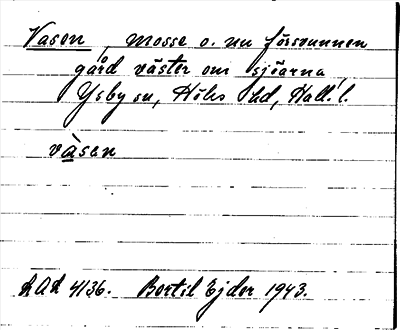 Vasen, mosse o. nu försvunnen
gård väster om sjöarna,
Ysby sn, Höks hd, Hall. l.
vàsen
LAL 4136. Bertil Ejder 1943.